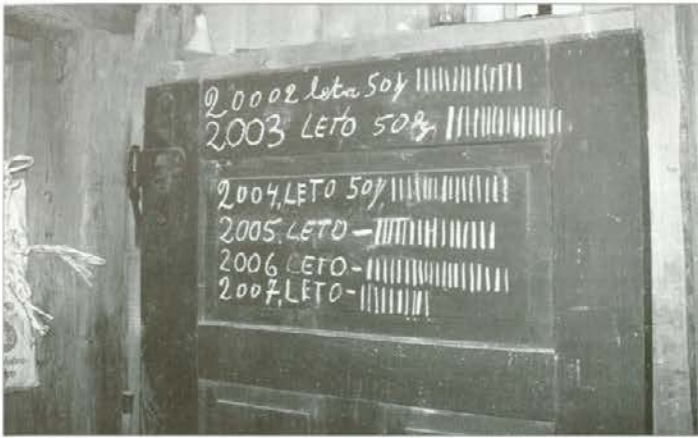 20002 leta 50
2003 LETO 50
2004. LETO 50
2005. LETO -
2006 LETO -
2007. LETO -